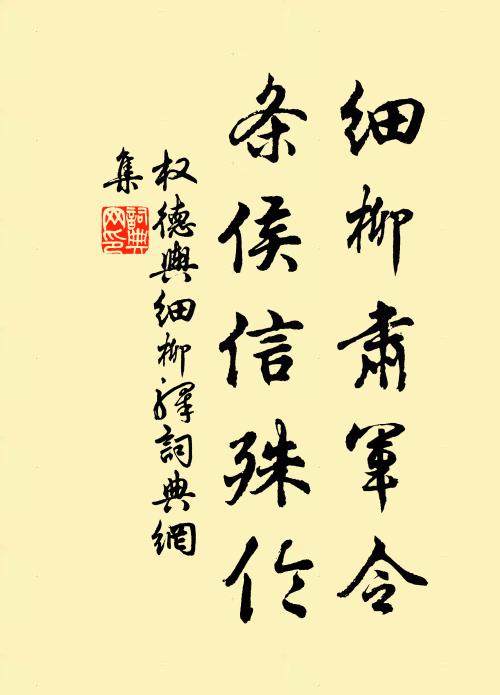 细柳肃军令
条侯信殊伦
权德舆细柳驿詞典網
集
詞典网印